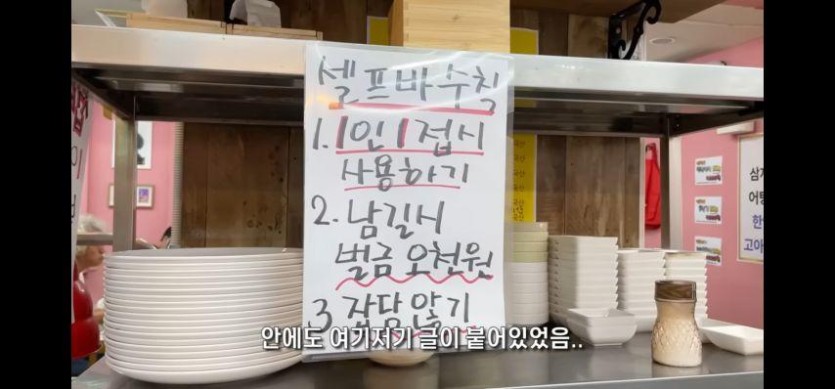 셀프바 수칙
1. 1인 1접시
사용하기
2. 남길시
벌금 오천원
3 잡담 않기
안에도 여기저기 글이 붙어있었음..